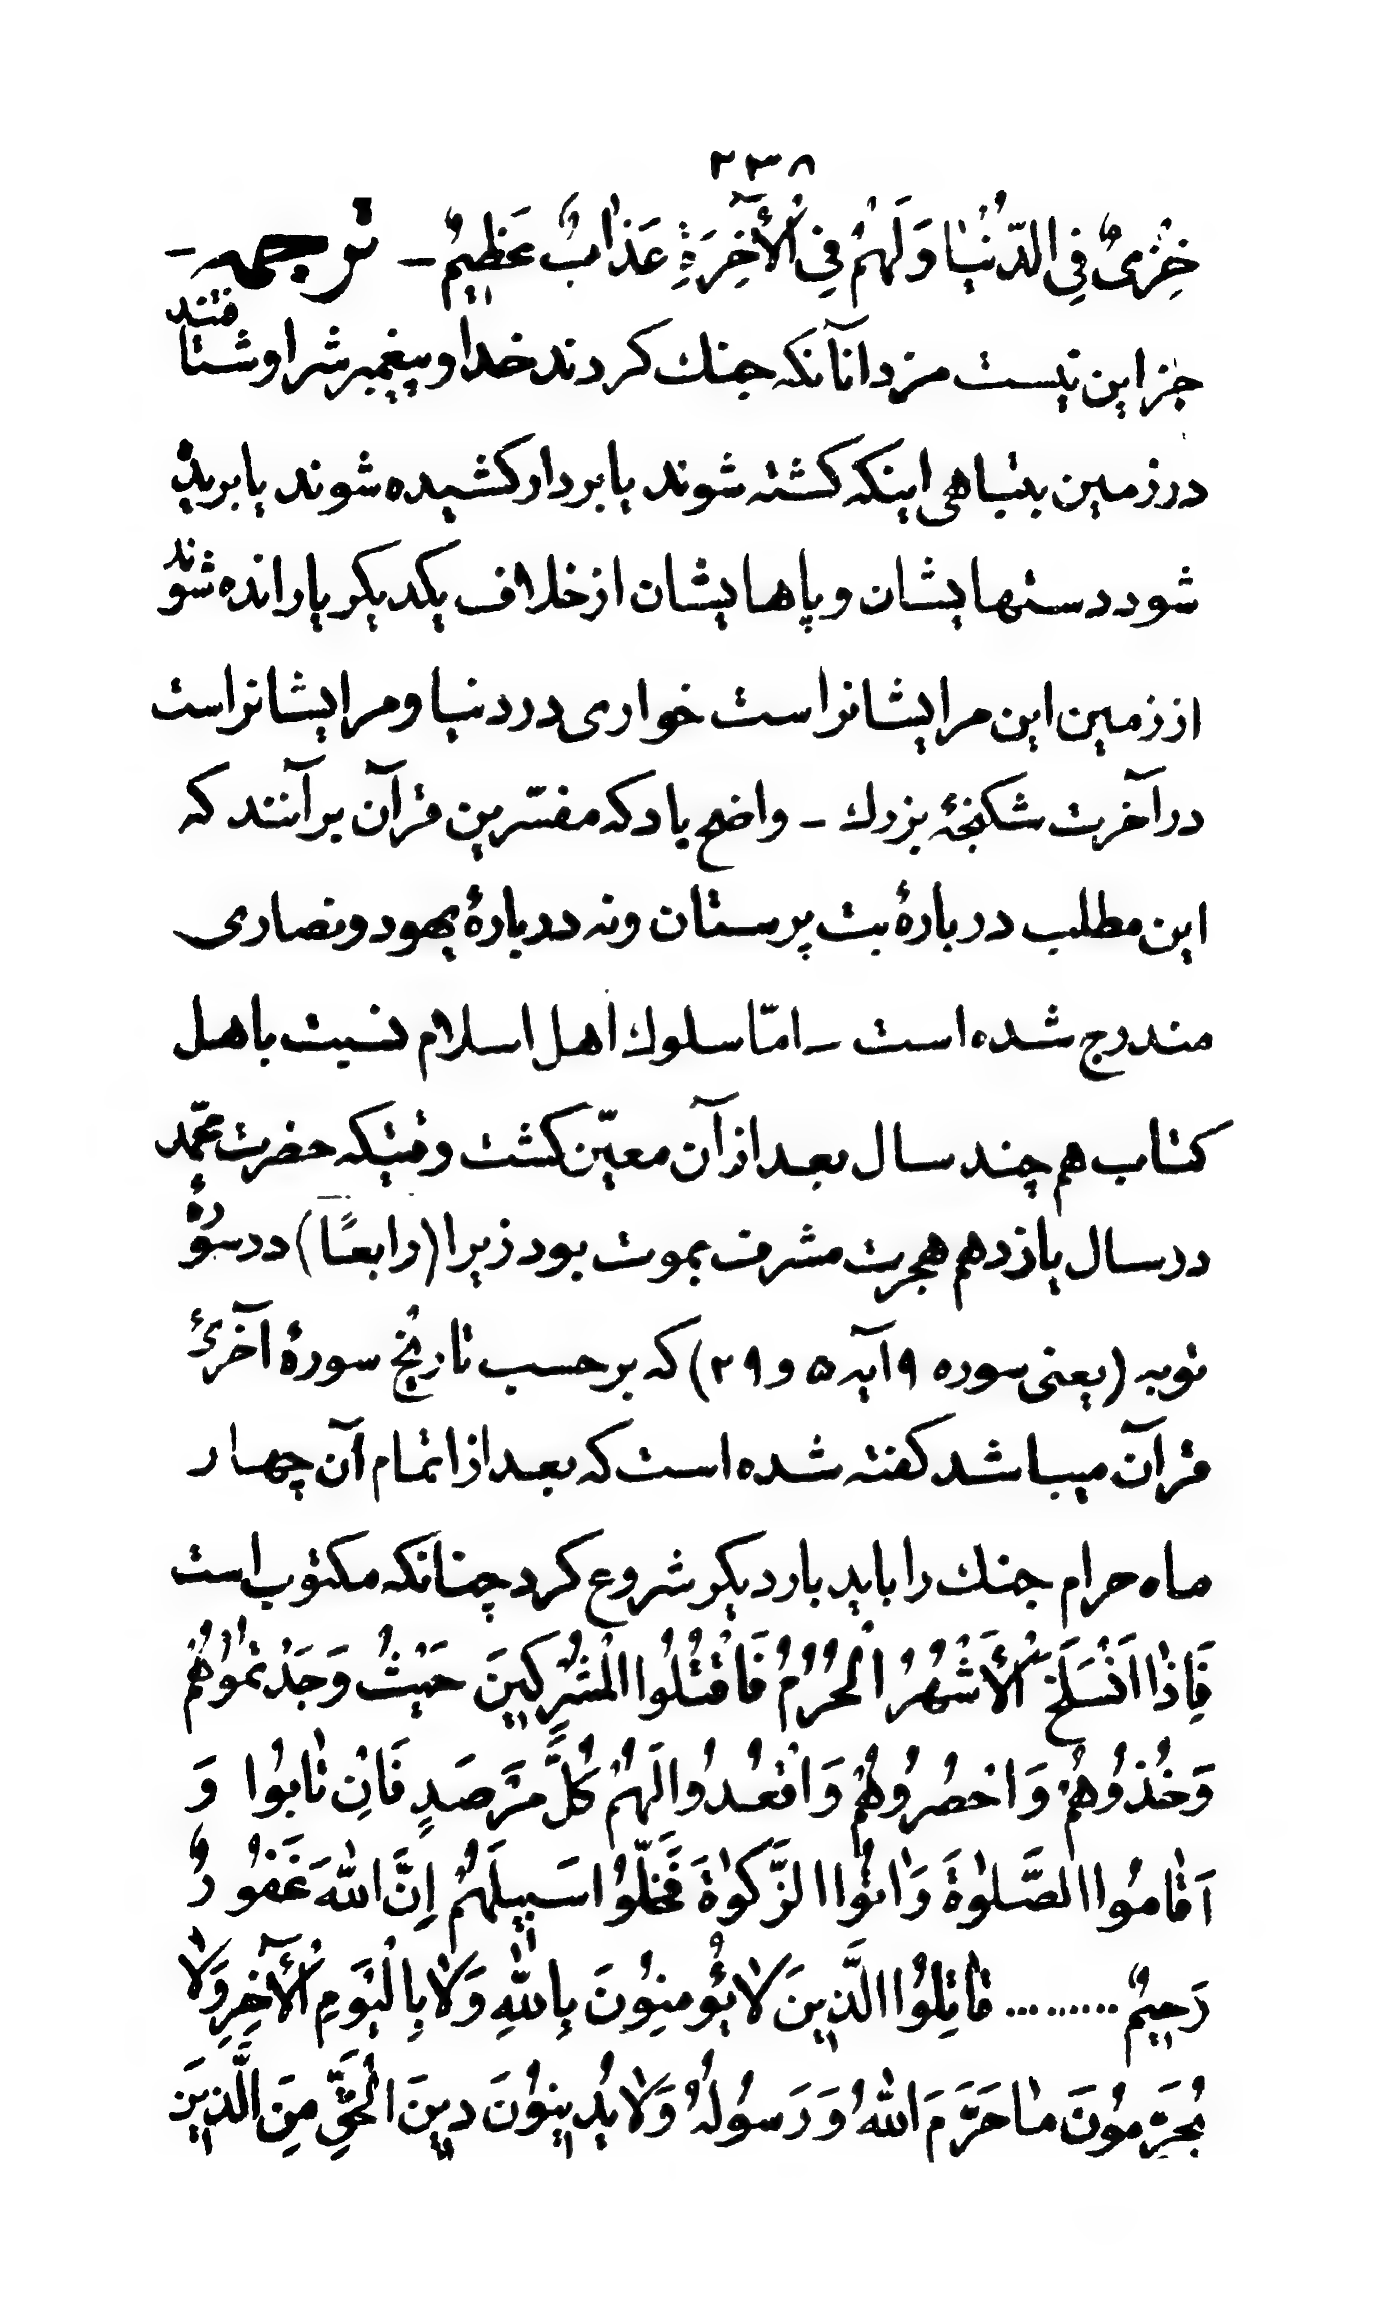 ۲۳۸
خِزْیٌ فِی الدُّنْیٰا وَلَهُمْ فِی الْأٓخِرَةِ عَذٰابٌ عَظِیمٌ ـ ترجمه ـ
جز این نیست مزد انانکه جنك کردند خدا و پیغمبرش را و شتافتند
در زمین بتباهی اینکه کشته شوند یا بردار کشیده شوند یا بریده
شود دستهایشان و پاهایشان از خلاف یکدیکر یا رانده شوند
از زمین این مرایشانراست خواری در دنیا و مرایشانراست
در آخرت شکنجهٔ بزرك ـ واضح باد که مفسّرین قرآن برآنند که
این مطلب دربارهٔ بت پرستان و نه دربارهٔ یهود و نصاری
مندرج شده است ـ امّا سلوك اهل اسلام نسبت باهل
کتاب هم چند سال بعد از آن معیّن کشت وقتیکه حضرت محمّد
در سال یازدهم هجرت مشرف بموت بود زیرا (رابعًا) در سورهٔ
توبه (یعنی سوره ۹ آیه ۵ و ۲۹) که بر حسب تاریخ سورهٔ آخریٔ
قرآن میباشد کفته شده است که بعد از اتمام آن چهار
ماه حرام جنك را باید بار دیکر شروع کرد چنانکه مکتوب است
فَاِذٰا انْسَلَخَ الْأَشْهُرُ الْحُرُمُ فَاقْتُلُوا الْمُشْرِکِینَ حَیْثُ وَجَدْتُمُوهُمْ
وَخُذُوهُمْ وَاحْصُرُوهُمْ وَاقْعُدُوا لَهُمْ کُلَّ مَرْصَدٍ فَاِنْ تٰابُوا وَ
اَقٰامُوا الصَّلوٰةَ وَاٰتَوُا الزَّکوٰةَ فَخَلُّوا سَبِیلَهُمْ اِنَّ اللّٰهَ غَفُورٌ
رَحِیمٌ ......... قٰاتِلُوا الَّذِینَ لاٰ یُؤْمِنُونَ بِاللّٰهِ وَلاٰ بِالْیَوْمِ الْأٓخِرِ وَلاٰ
یُحَرِّمُونَ مٰا حَرَّمَ اللّٰهُ وَرَسُولُهُ وَلاٰ یَدِینُونَ دِینَ الْحَقِّ مِنَ الَّذِینَ